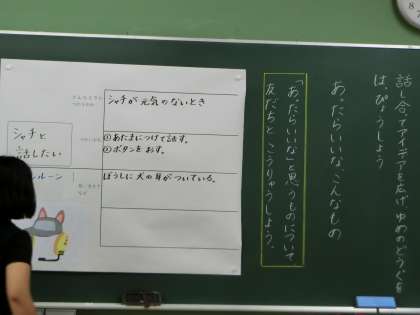 話し合ってアイデアを広げ ゆめのどうぐを
は、ぴょうしよう
あ、たらいいな、こんなもの
「あ、たらいいな」と思うものについて
友だちと こうりゅうしよう。
シャチが元気のないとき
シャチと
話したい
①あたまにつけて話す。
②ボタンを おす。
ルーン
ぼうしに 犬の耳がついている。